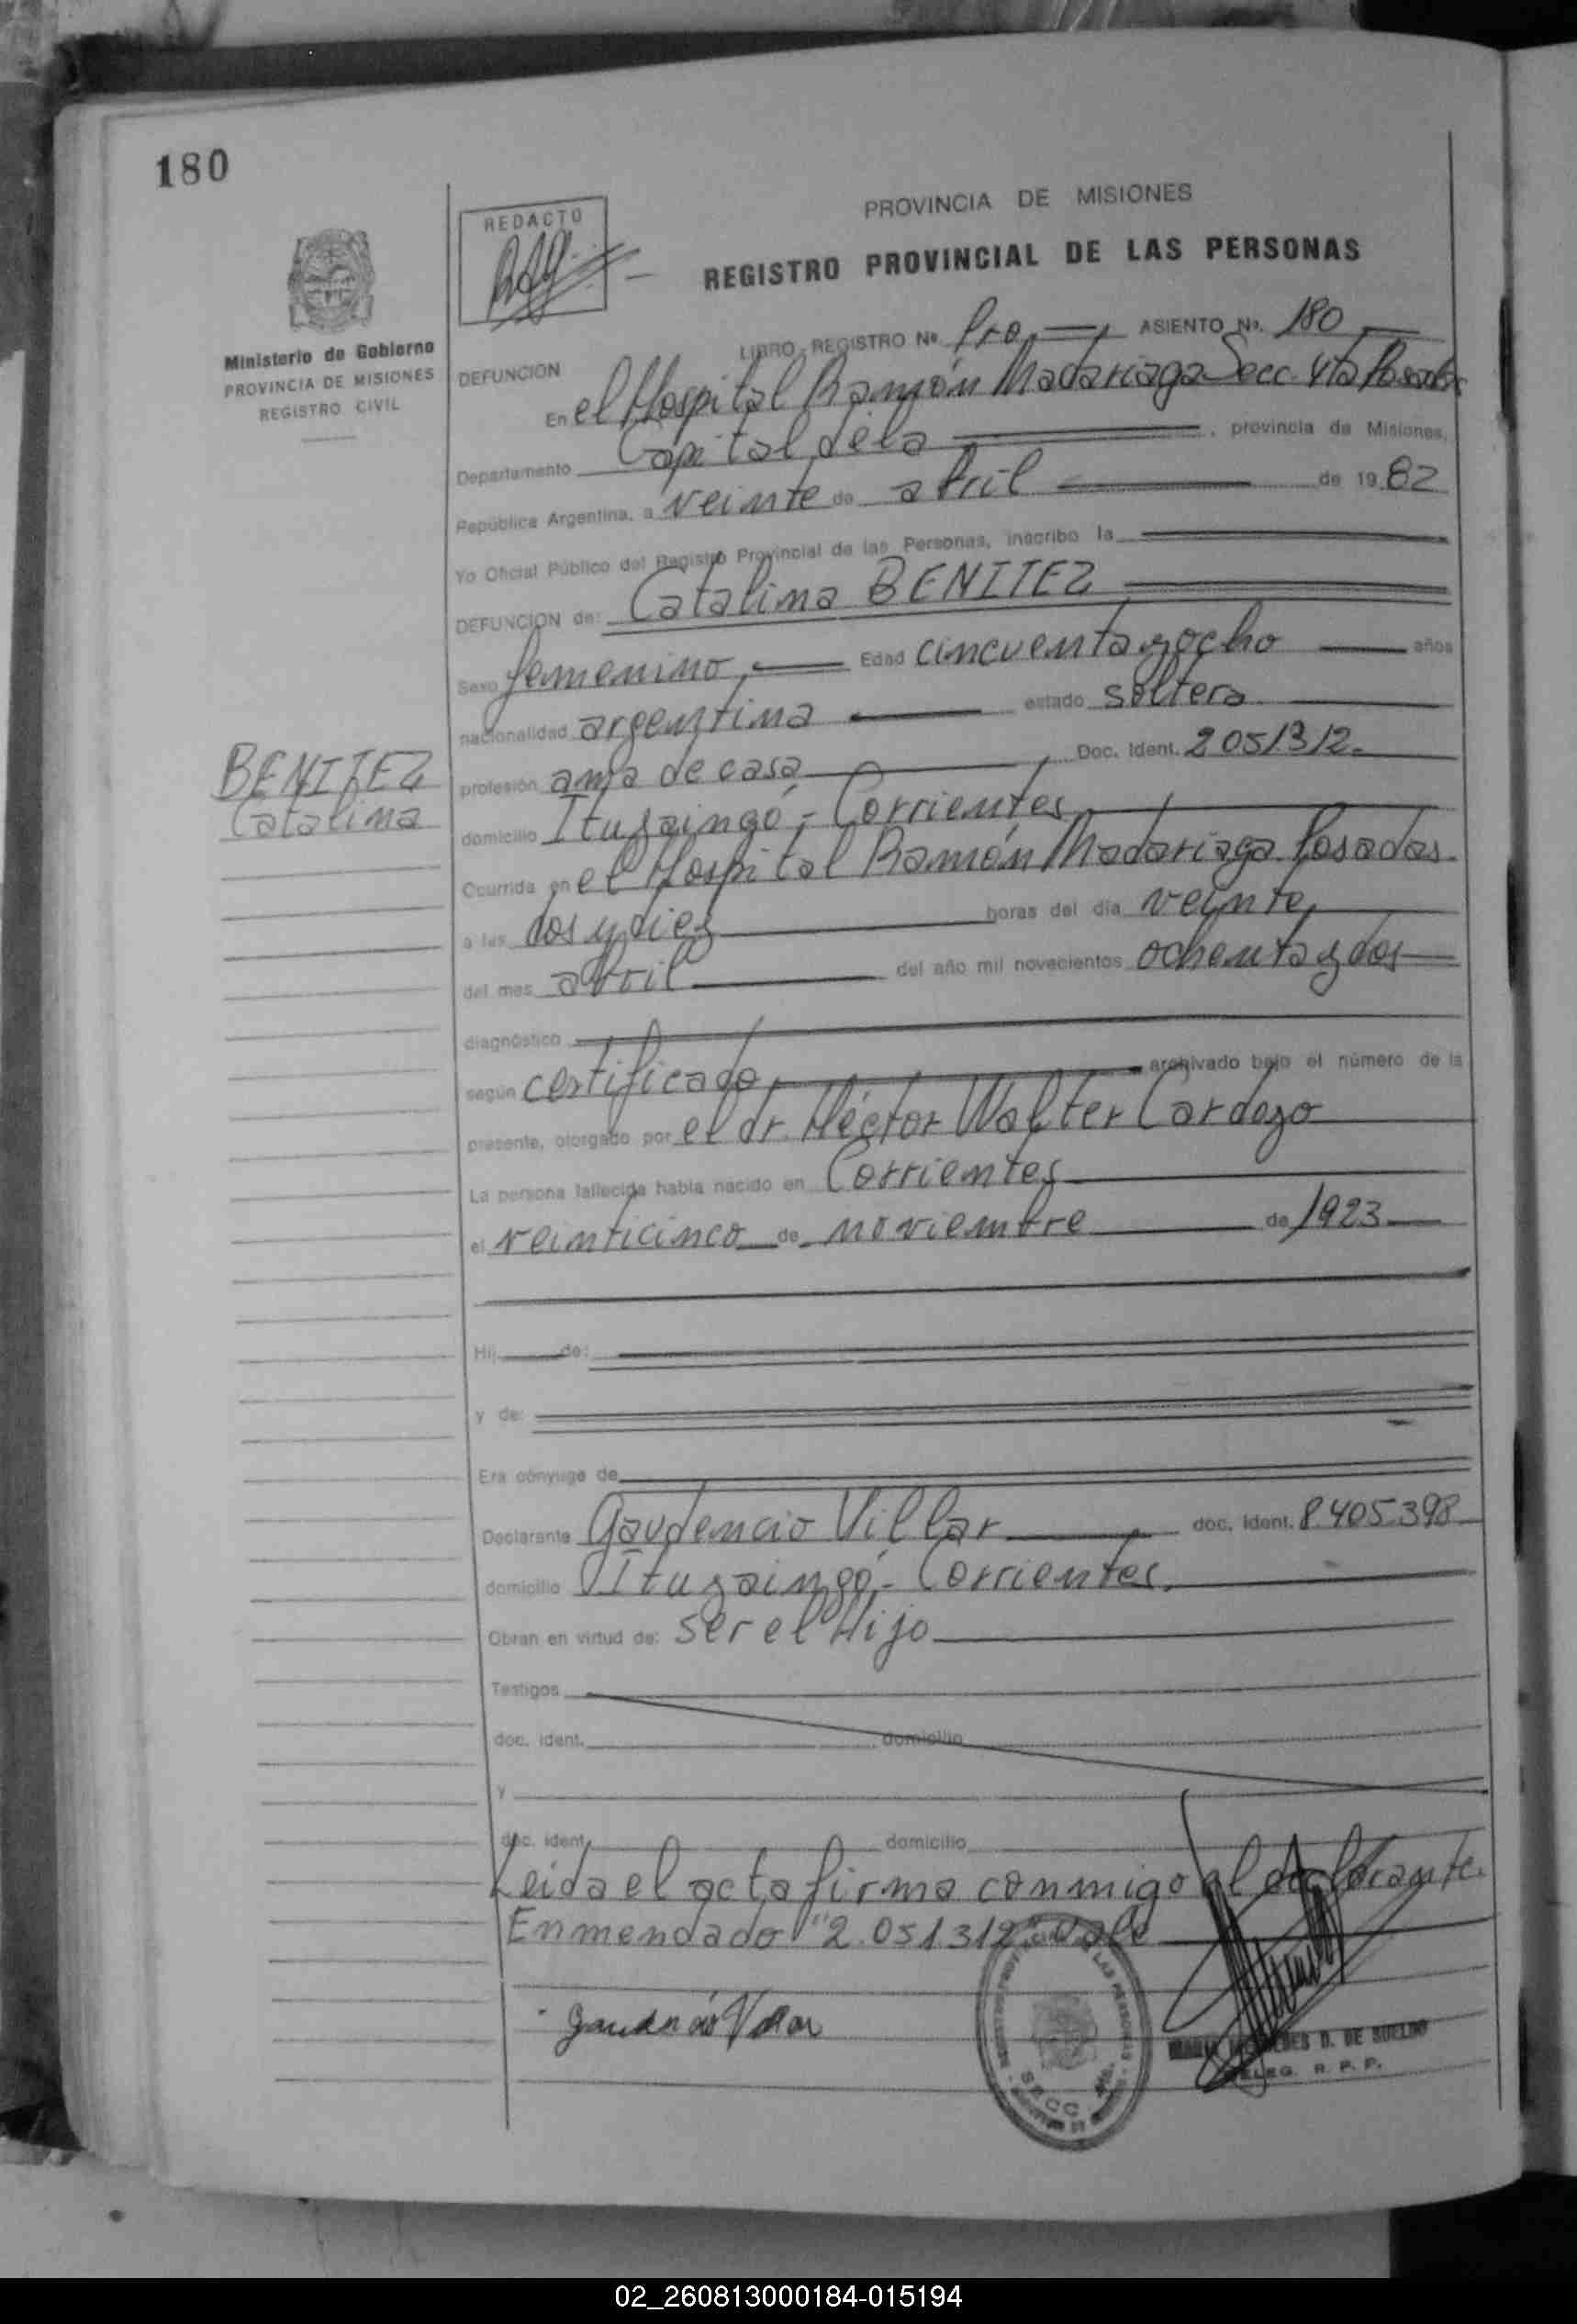 180
REDACTO
PROVINCIA DE MISIONES
REGISTRO PROVINCIAL DE LAS PERSONAS
Ministerio de Gobierno
PROVINCIA DE MISIONES
REGISTRO CIVIL
LIBRO REGISTRO No. 1ro. ASIENTO No. 180
DEFUNCION
En el Hospital Ramón Madariaga Secc. 4ta Posadas
Departamento Capital de la , provincia de Misiones,
República Argentina, a veinte de abril de 1982
Yo Oficial Público del Registro Provincial de las Personas, inscribo la
DEFUNCION de: Catalina BENITEZ
Sexo femenino, Edad cincuenta y ocho años
nacionalidad argentina estado soltera
BENITEZ
Catalina
profesión ama de casa, Doc. Ident. 2051312.
domicilio Ituzaingó - Corrientes
Ocurrida en el Hospital Ramón Madariaga Posadas.
a las dos y diez horas del día veinte,
del mes abril del año mil novecientos ochenta y dos
diagnóstico
según certificado, archivado bajo el número de la
presente, otorgado por el dr. Héctor Walter Cardozo
La persona fallecida había nacido en Corrientes
el veinticinco de noviembre de 1923
Hij de:
y de:
Era cónyuge de
Declarante Gaudencio Villar, doc. ident. 8.405.398
domicilio Ituzaingó - Corrientes.
Obran en virtud de: ser el Hijo
Testigos
doc. ident. domicilio
y
doc. ident. domicilio
Leida el acta firma conmigo el declarante.
Enmendado "2.051.312" vale
Gaudencio Villar
D. DE SUELDO
DELEG. R. P. P.
SECC.
02_260813000184-015194